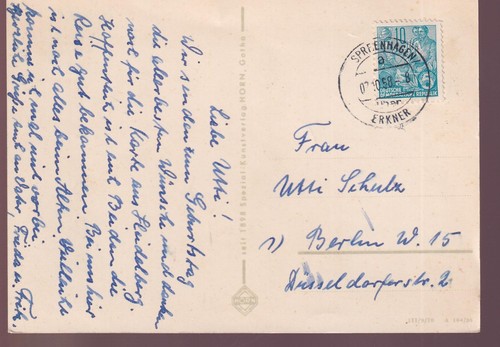 Liebe Utti!
Wir senden zum Geburtstag
die allerbesten Wünsche und danken
noch für die Karte aus Heidelberg.
Hoffentlich ist und Beiden die
Reise gut bekommen. Bei uns hier
ist noch alles beim Alten. Vielleicht
kommt ihr mal und vorbei.
Herzliche Grüße und
Frieda u. Fritz.
seit 1898 Spezial-Kunstverlag HORN, Gotha
10
DEUTSCHE
DEMOKRATISCHE REPUBLIK
SPREENHAGEN
a
ERKNER
Frau
Utti Schulz
1) Berlin W. 15
Düsseldorferstr. 2